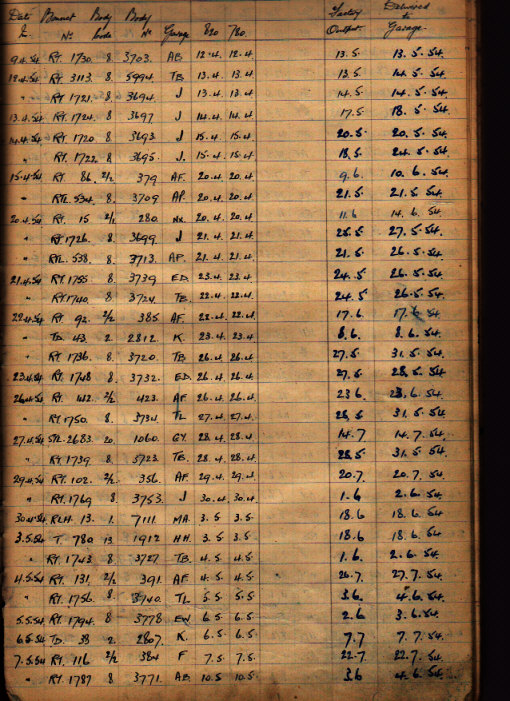 Date In Bonnet Nº Body Code Body Nº Garage 820 780. Factory Output. Delivered to Garage.
9.4.54 RT. 1730. 8. 3703. AB 12.4. 12.4. 13.5. 13.5.54.
12.4.54 RT. 3113. 8. 5994 TB. 13.4. 13.4. 13.5 14.5.54.
" RT. 1721. 8. 3694. J 13.4. 13.4. 14.5. 14.5.54.
13.4.54 RT. 1724. 8. 3697 J 14.4. 14.4. 17.5 18.5.54.
14.4.54 RT. 1720 8. 3693 J 15.4. 15.4. 20.5. 20.5.54.
" RT. 1722 8. 3695. J. 15.4. 15.4. 18.5. 24.5.54.
15.4.54 RT. 86. 2/2 379 AF. 20.4. 20.4. 9.6. 10.6.54.
" RTL. 534. 8. 3709 AP. 20.4. 20.4. 21.5 21.5.54.
20.4.54 RT. 15 2/1 280. 20.4. 20.4. 11.6 14.6.54.
" RT. 1726. 8. 3699 J 21.4. 21.4. 25.5 27.5.54.
" RTL. 538. 8. 3713. AP. 21.4. 21.4. 21.5. 26.5.54.
21.4.54 RT. 1755 8. 3739 ED. 23.4. 23.4. 24.5. 26.5.54.
" RT. 1740. 8. 3724 TB. 22.4. 22.4. 24.5. 26.5.54.
22.4.54 RT. 92. 2/2 385 AF. 22.4. 22.4. 17.6 17.6.54.
" TD. 43. 2 2812. K 23.4. 23.4. 8.6. 8.6.54.
" RT. 1736. 8. 3720. TB 26.4. 26.4. 27.5. 31.5.54.
23.4.54 RT. 1748 8. 3732. ED. 26.4. 26.4. 27.5. 28.5.54.
26.4.54 RT. 142. 2/2 423. AF 26.4. 26.4. 23.6. 23.6.54.
" RT 1750. 8. 3734. TL 27.4. 27.4. 28.5 31.5.54.
27.4.54 STL. 2683. 20. 1060. GY. 28.4. 28.4. 14.7 14.7.54.
" RT. 1739 8. 3723 TB. 28.4. 28.4. 28.5 31.5.54
29.4.54 RT. 102. 2/2. 356. AF. 29.4. 29.4. 20.7. 20.7.54.
" RT. 1769 8. 3753. J 30.4. 30.4. 1.6 2.6.54.
30.4.54 RLH. 13. 1. 7111 MA. 3.5 3.5. 18.6 18.6.54.
3.5.54 T. 780 13 1912 HH. 3.5. 3.5. 18.6 18.6.54.
" RT. 1743. 8 3727 TB. 4.5. 4.5. 1.6. 2.6.54.
4.5.54 RT. 131. 2/2 391. AF. 4.5. 4.5. 26.7. 27.7.54.
" RT. 1756. 8. 3740. TL 5.5 5.5. 3.6. 4.6.54.
5.5.54 RT. 1794. 8 3778 EW 6.5. 6.5. 2.6 3.6.54.
6.5.54 TD. 38 2. 2807. K. 6.5. 6.5. 7.7 7.7.54.
7.5.54 RT. 116 2/2 384 F 7.5. 7.5. 22.7 22.7.54.
" RT. 1787 8 3771. AB. 10.5 10.5. 3.6 4.6.54.